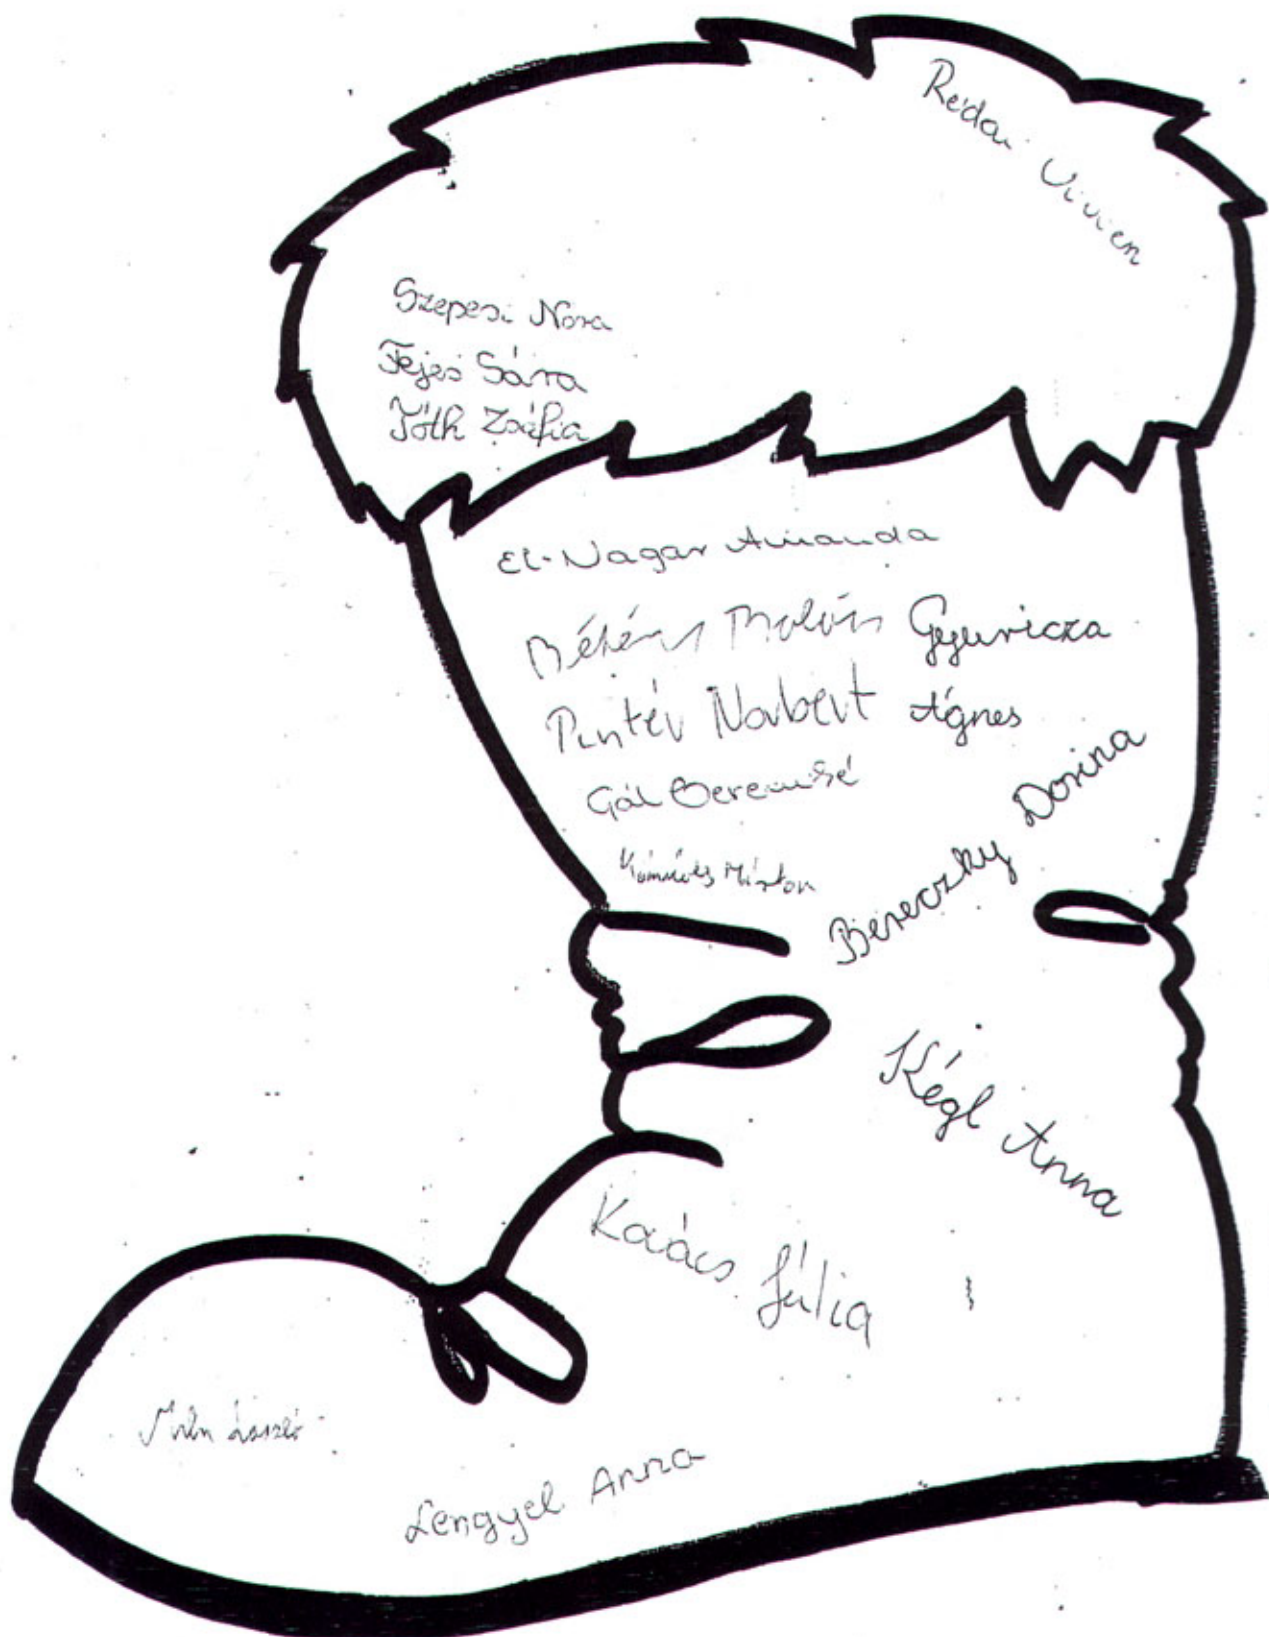 Rédai Vivien
Szepesi Nóra
Fejes Sára
Tóth Zsófia
El-Nagar Amanda
Gyuricza
Pintér Norbert Ágnes
Gál Bereniké
Kőműves Márton
Bereczky Dorina
Kégl Anna
Kovács Júlia
László
Lengyel Anna